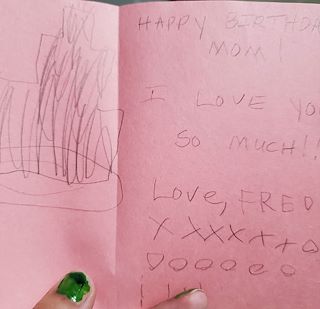 HAPPY BIRTHDA
MOM!
I LOVE YO
SO MUCH!!
LOVE, FRED
X XXX X X O
O O O O O O